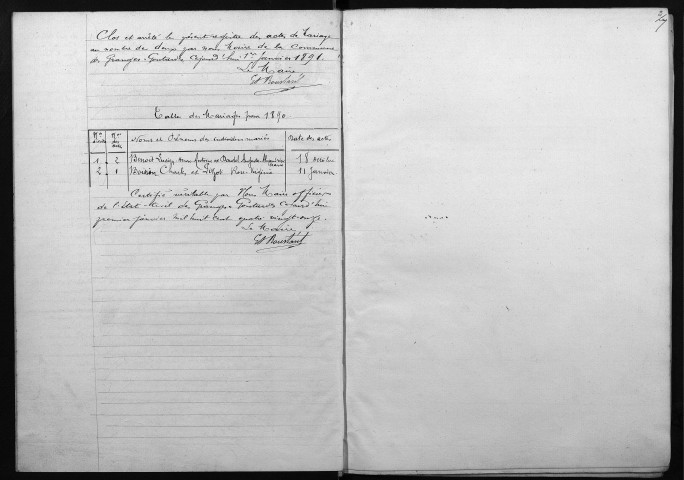 Clos et arrêté le présent registre des actes de Mariage
au nombre de deux par nous Maire de la Commune
de Granges-Gontardes Aujourd'hui 1er Janvier 1891.
Le Maire
Et Roustant
Table des Mariages pour 1890
Nos d'ordre | Nos des actes | Noms et Prénoms des individus mariés | Date des actes
1 | 2 | Benoit et | 18
2 | 1 | Charles et Rose | 11 Janvier
Certifié véritable par Nous Maire officier
de l'Etat-Civil des Granges-Gontardes Ce jourd'hui
premier janvier mil huit cent quatre vingt-onze.
Le Maire
Et Roustant